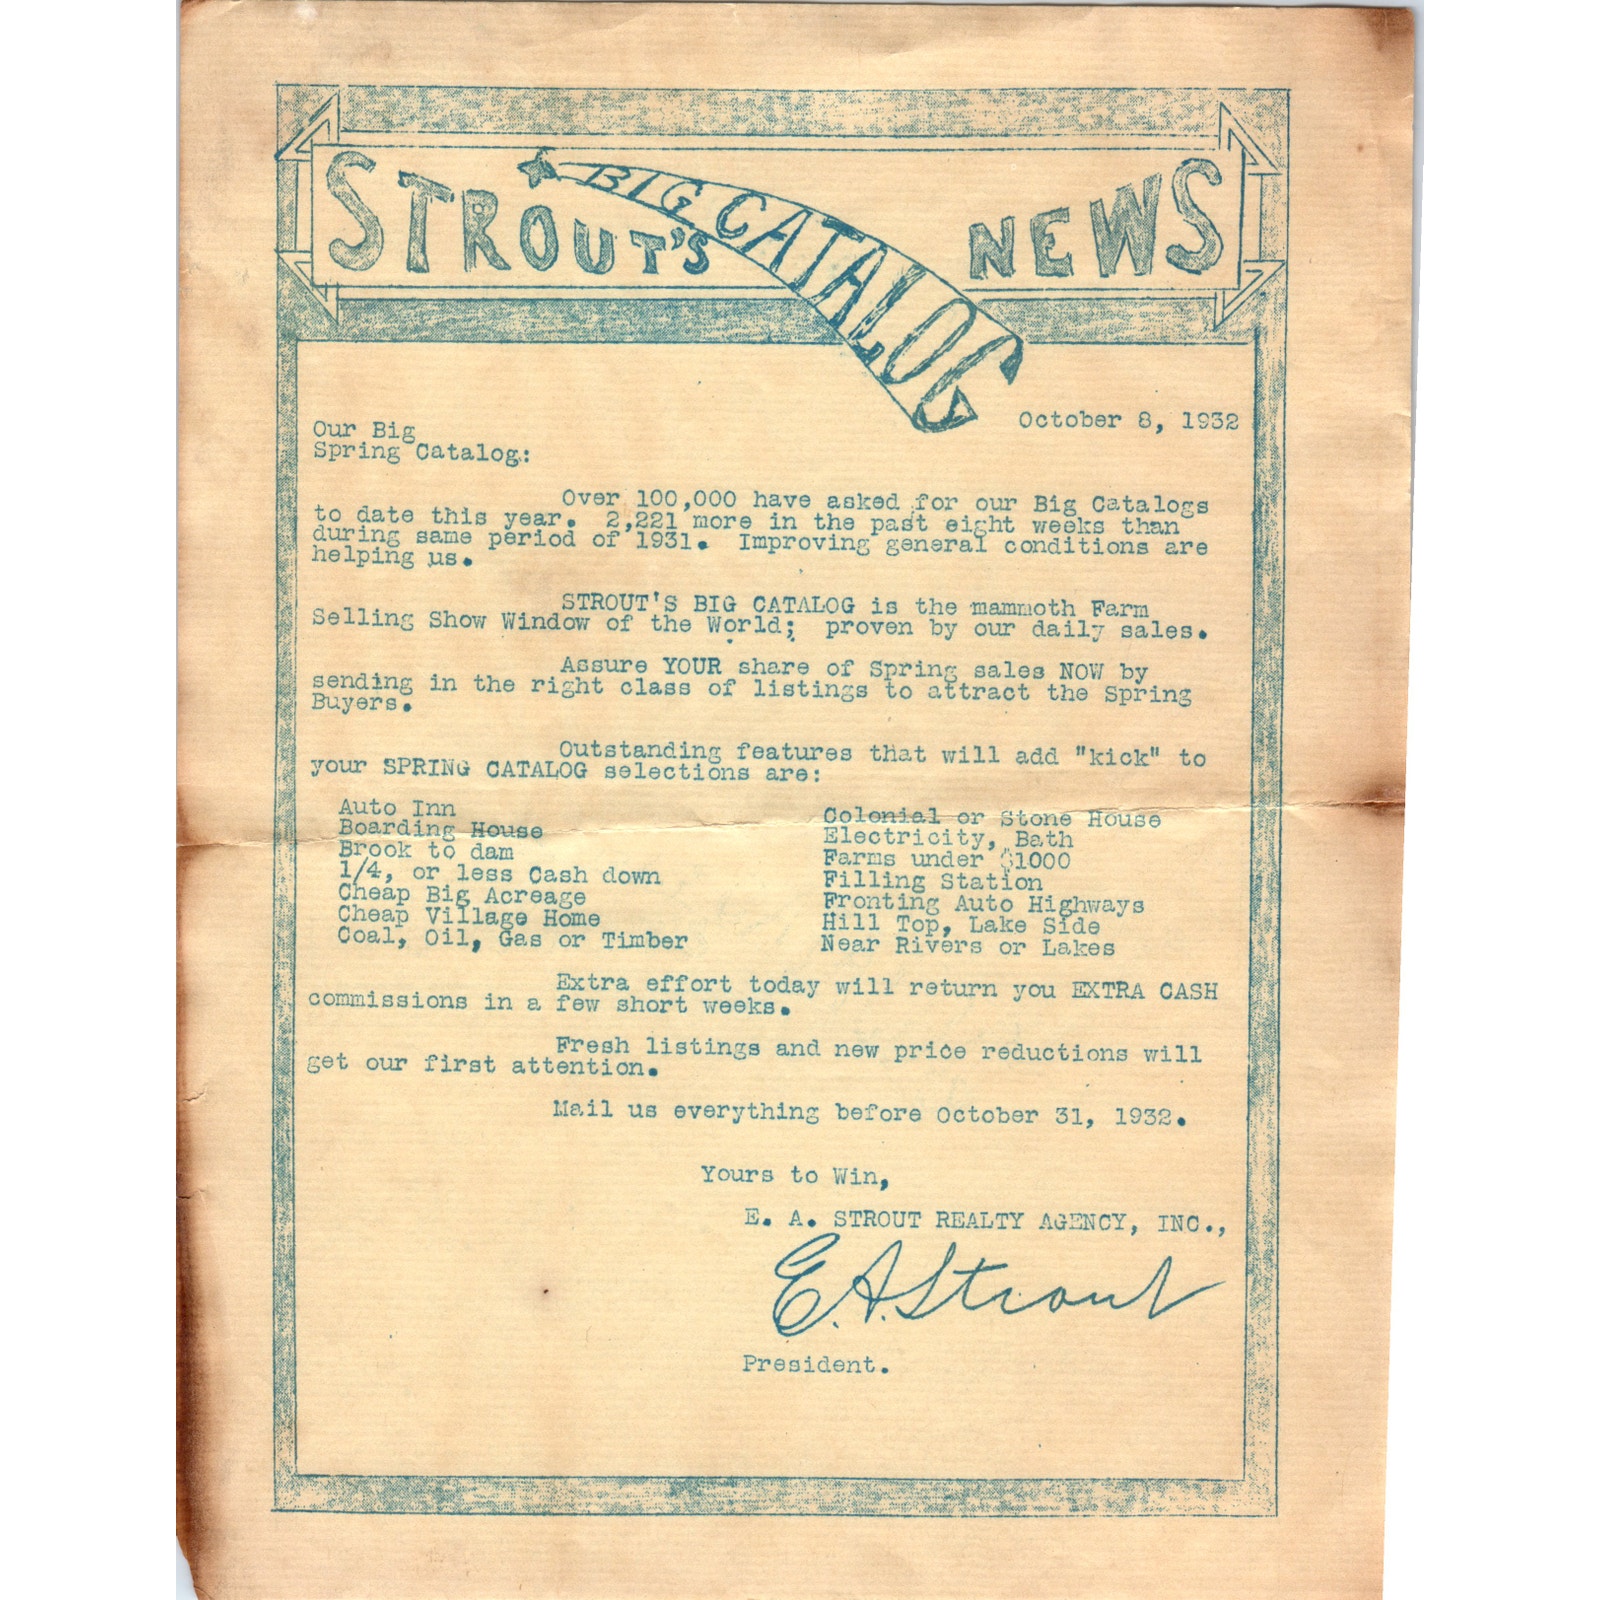 STROUT'S BIG CATALOG NEWS
October 8, 1932
Our Big
Spring Catalog:
Over 100,000 have asked for our Big Catalogs
to date this year. 2,221 more in the past eight weeks than
during same period of 1931. Improving general conditions are
helping us.
STROUT'S BIG CATALOG is the mammoth Farm
Selling Show Window of the World; proven by our daily sales.
Assure YOUR share of Spring sales NOW by
sending in the right class of listings to attract the Spring
Buyers.
Outstanding features that will add "kick" to
your SPRING CATALOG selections are:
Auto Inn
Boarding House
Brook to dam
1/4, or less Cash down
Cheap Big Acreage
Cheap Village Home
Coal, Oil, Gas or Timber
Colonial or Stone House
Electricity, Bath
Farms under $1000
Filling Station
Fronting Auto Highways
Hill Top, Lake Side
Near Rivers or Lakes
Extra effort today will return you EXTRA CASH
commissions in a few short weeks.
Fresh listings and new price reductions will
get our first attention.
Mail us everything before October 31, 1932.
Yours to Win,
E. A. STROUT REALTY AGENCY, INC.,
E.A. Strout
President.